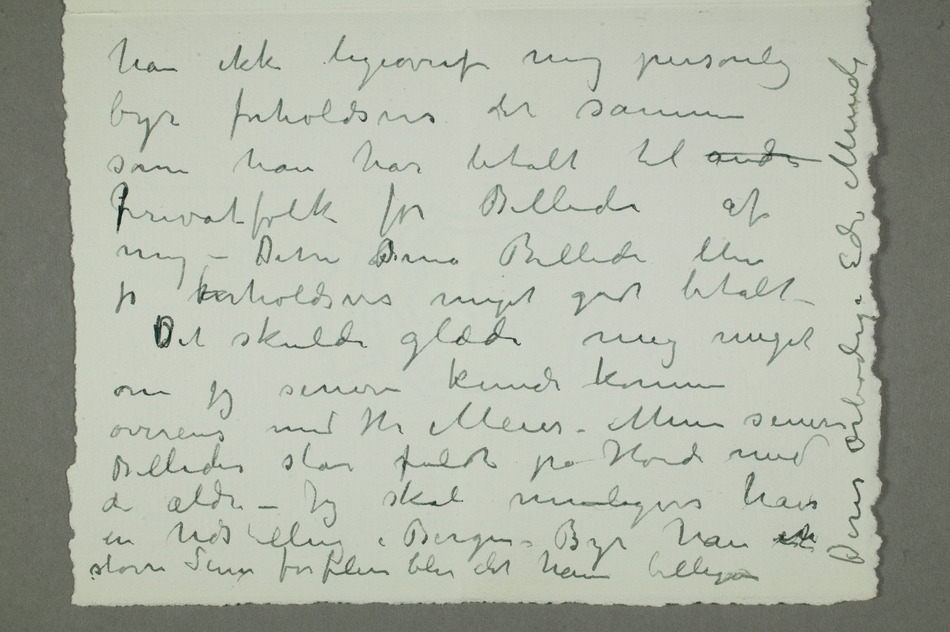 han ikke ligeoverfor mig personlig
byr forholdsvis det samme
som han har betalt til andre
Privatfolk for Billeder af
mig – Disse Sma Billeder blev
jo forholdsvis meget godt betalt –
Det skulde glæde mig meget
om jeg senere kunde komme
overens med Hr Meier – Mine senere
Billeder står fuldt på Høide med
de ældre – Jeg skal muligens have
en Udstilling i Bergen – Byr han
større Sum for flere blir det ham billigere
Deres ærbødige Edv Munch